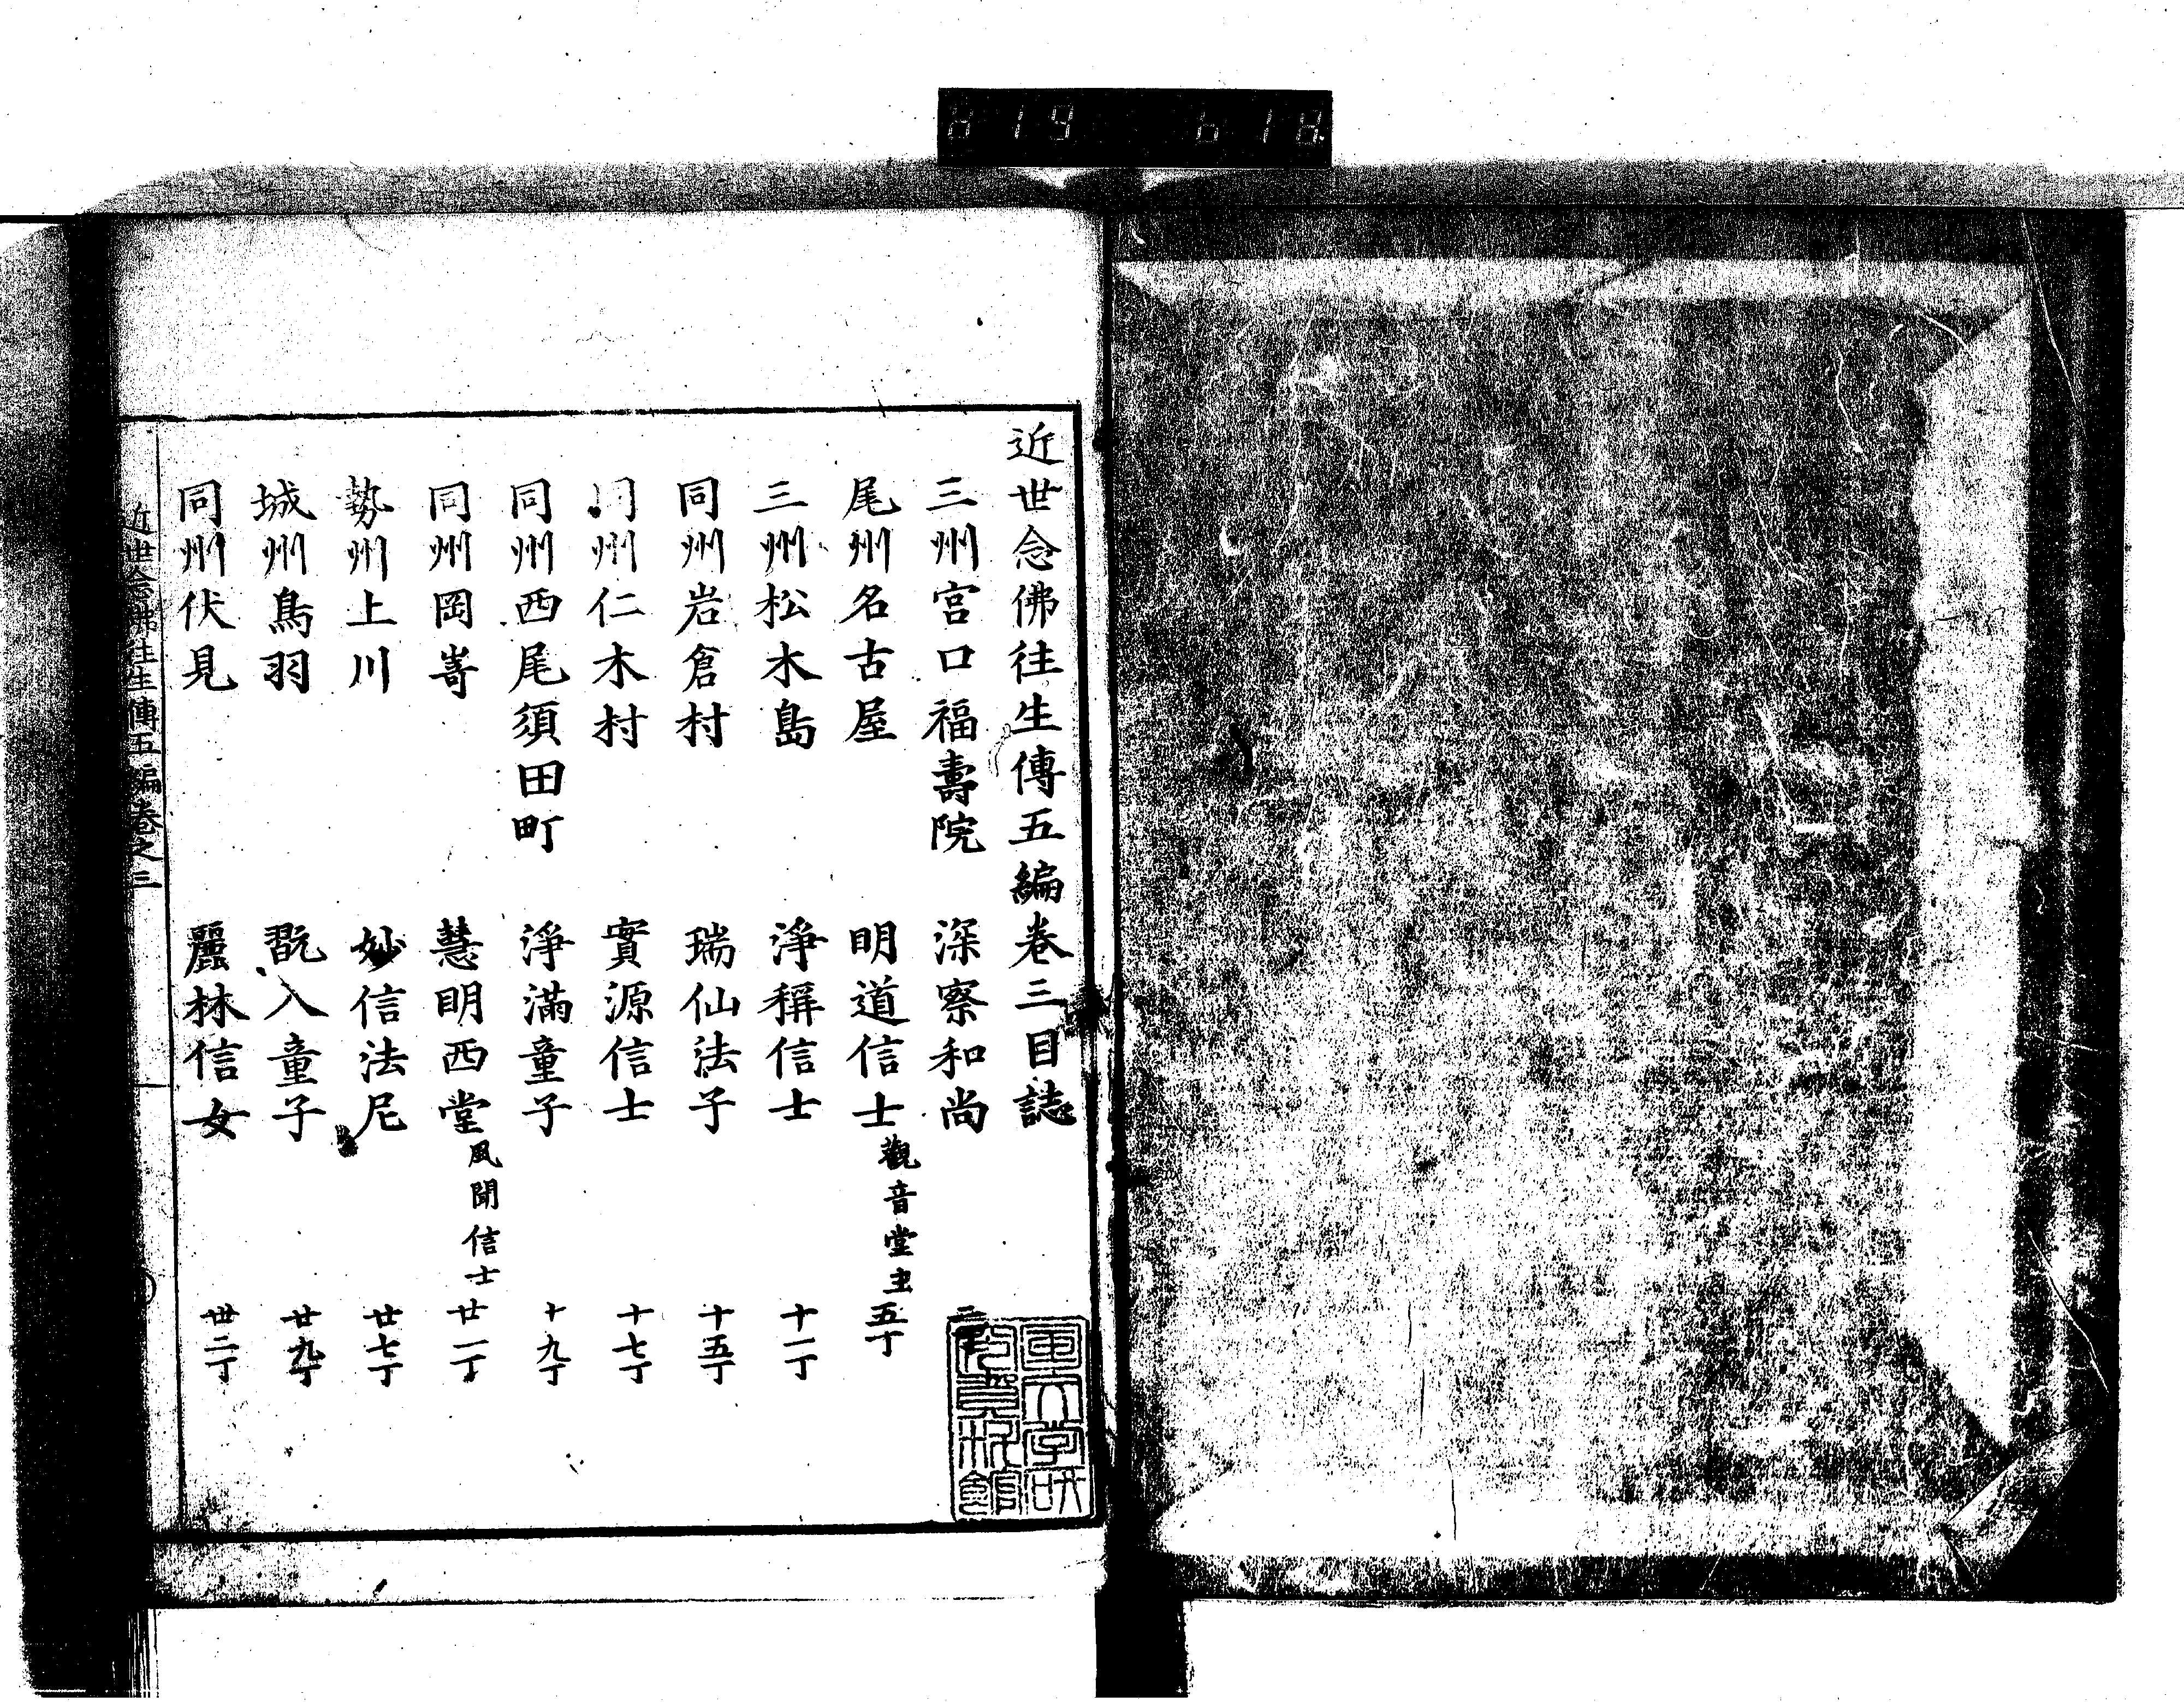 819 618
近世念佛往生傳五編卷三目誌
三州宮口福壽院 深察和尚
尾州名古屋 明道信士觀音堂主 五丁
三州松木島 淨稱信士 十一丁
同州岩倉村 瑞仙法子 十五丁
同州仁木村 實源信士 十七丁
同州西尾須田町 淨滿童子 十九丁
同州岡嵜 慧明西堂風聞信士 廿一丁
勢州上川 妙信法尼 廿七丁
城州鳥羽 翫入童子 廿九丁
同州伏見 麗林信女 卅二丁
近世念佛往生傳五編卷之三 一